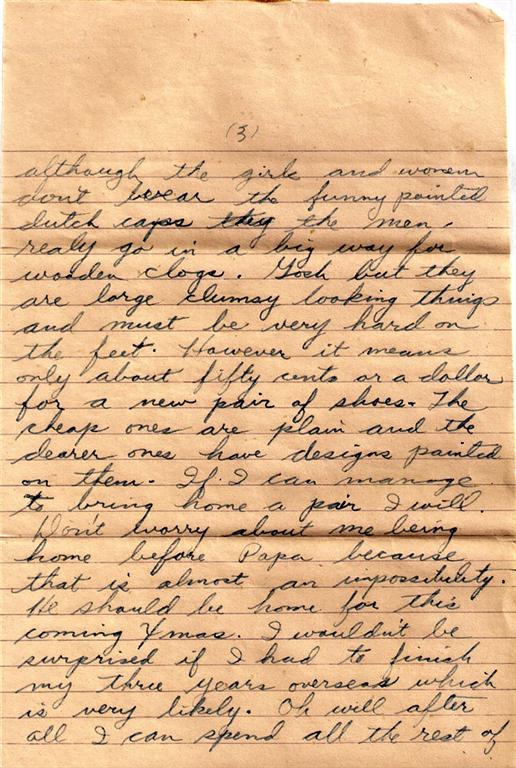 (3)
although the girls and women
don't wear the funny pointed
dutch caps they the men
realy go in a big way for
wooden clogs. Gosh but they
are large clumsy looking things
and must be very hard on
the feet. However it means
only about fifty cents or a dollar
for a new pair of shoes. The
cheap ones are plain and the
dearer ones have designs painted
on them. If I can manage
to bring home a pair I will.
Don't worry about me being
home before Papa because
that is almost an impossibility.
He should be home for this
coming Xmas. I wouldn't be
surprised if I had to finish
my three years overseas which
is very likely. Oh will after
all I can spend all the rest of